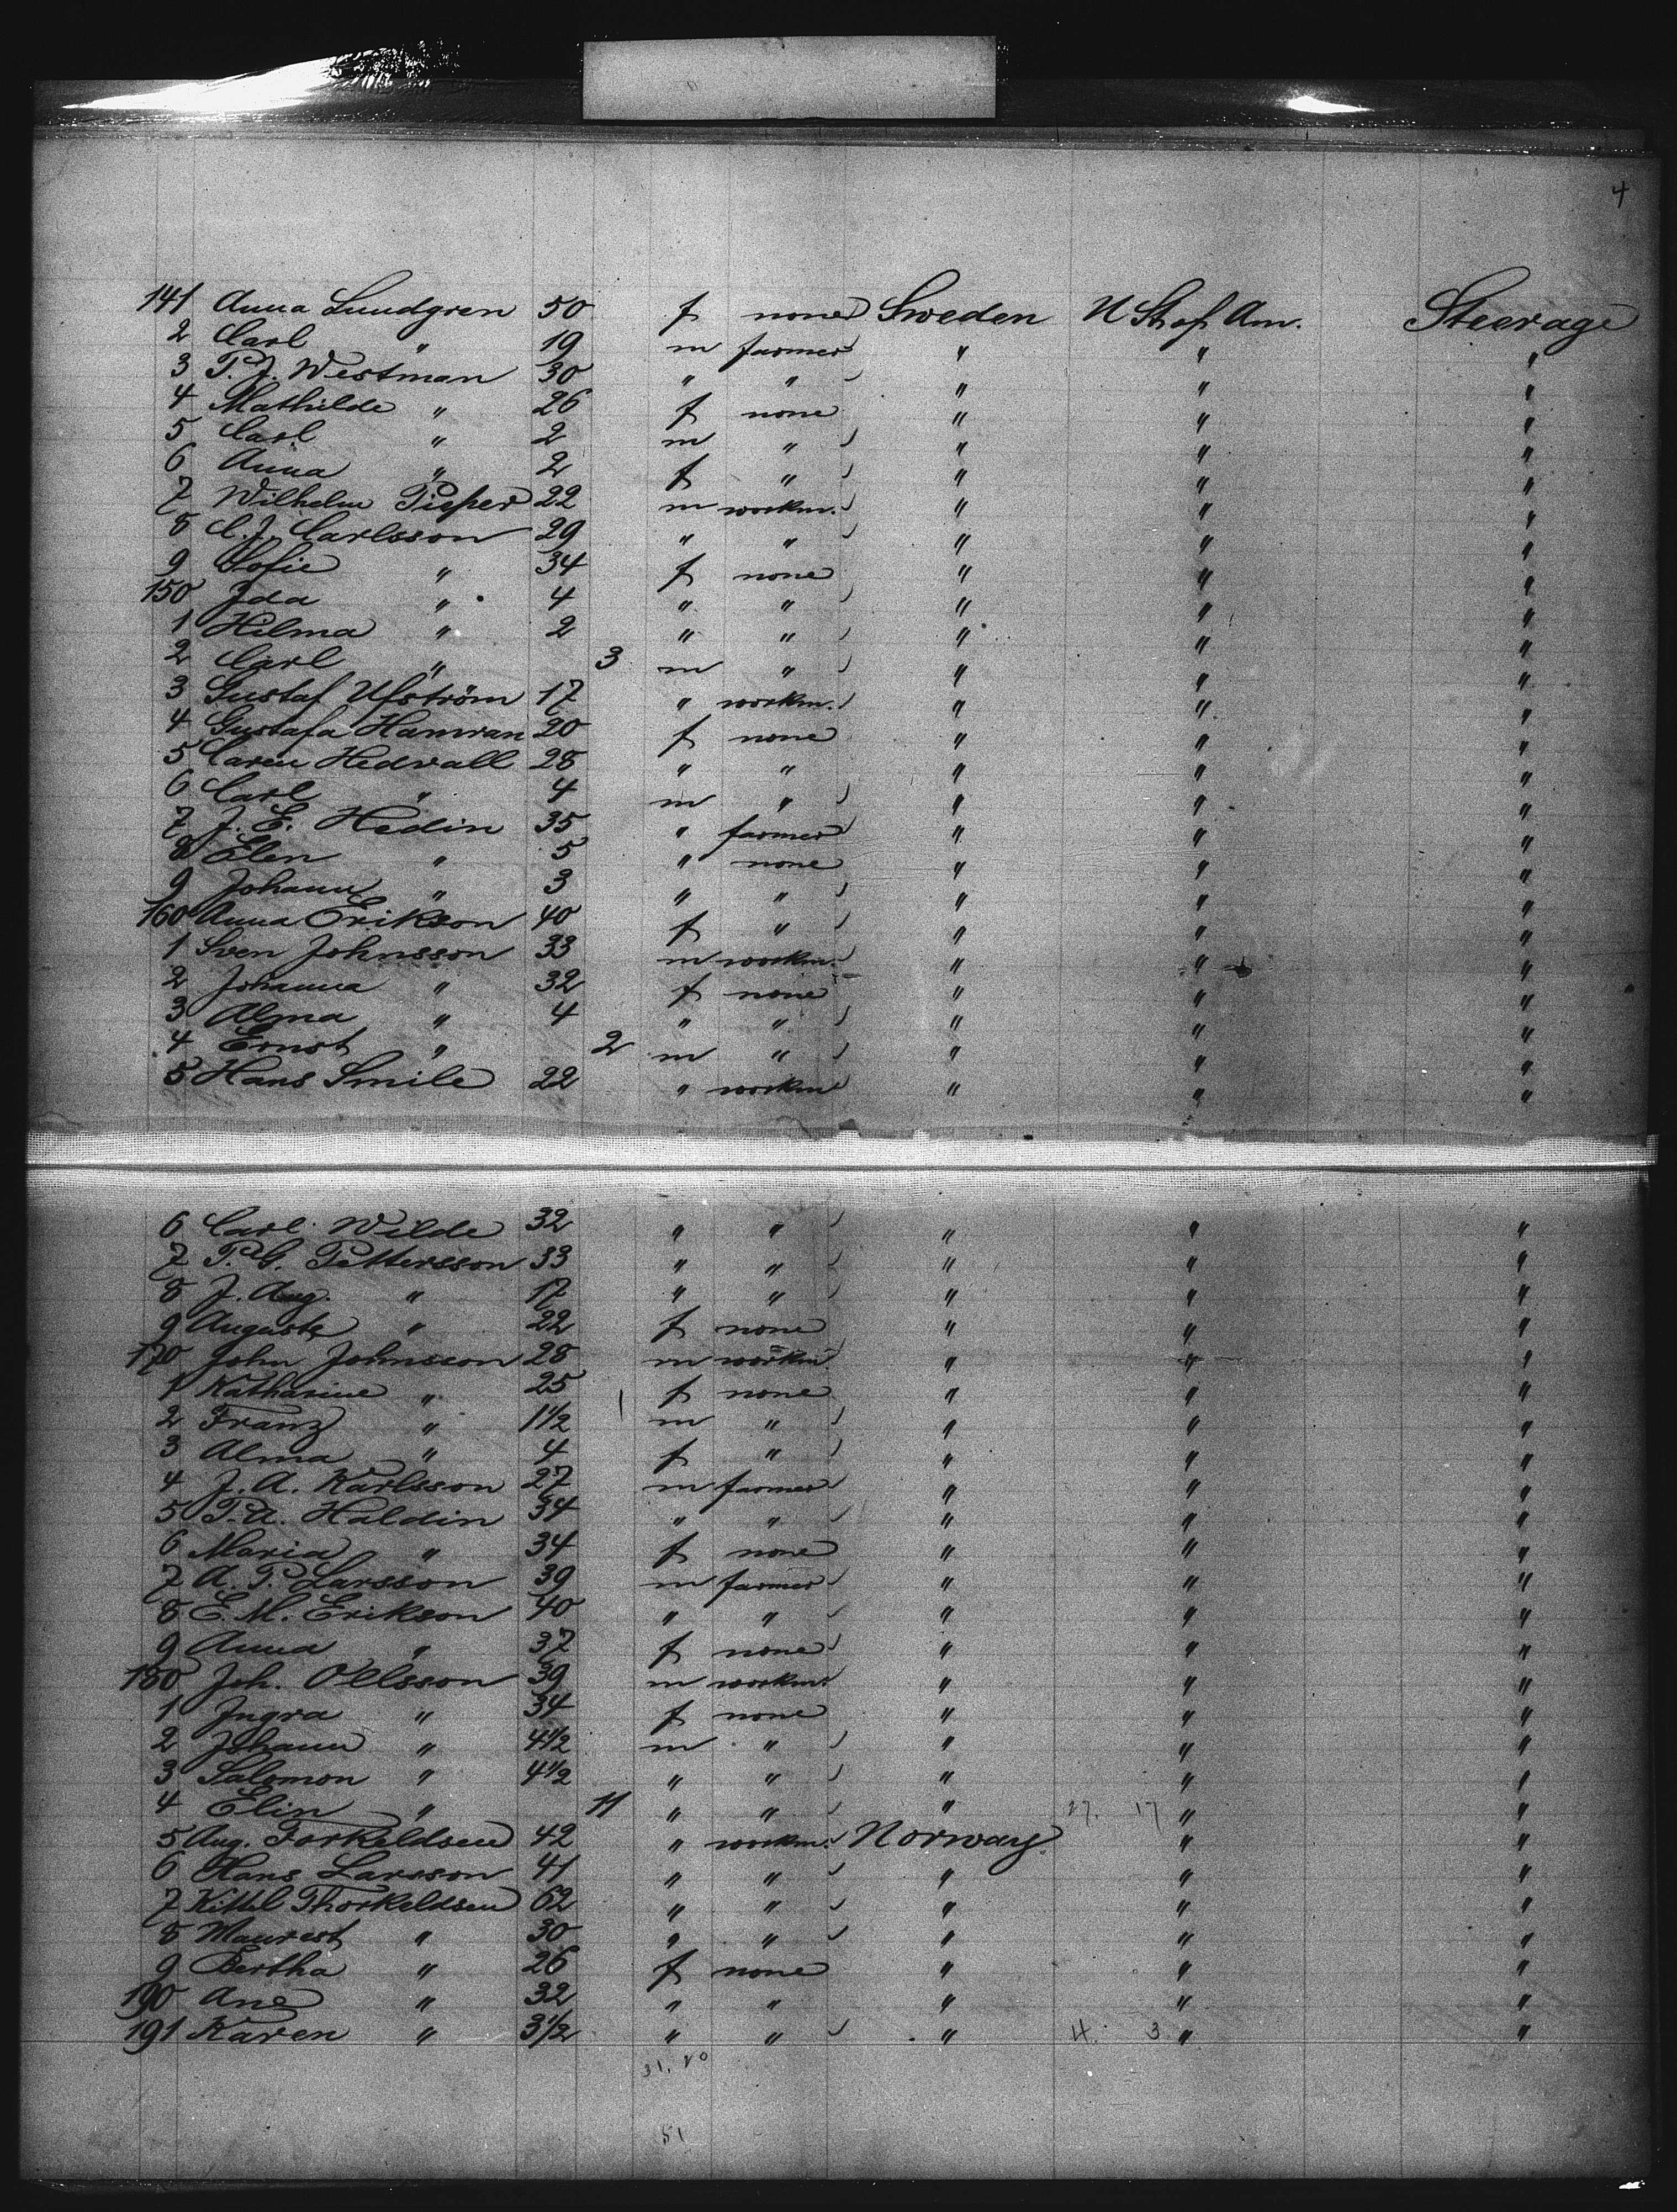 4
141 Anna Lundgren 50 f none Sweden U St of Am. Steerage
2 Carl " 19 m farmer " " "
3 P. J. Westman 30 " " " " "
4 Mathilde " 26 f none " " "
5 Carl " 2 m " " " "
6 Anna " 2 f " " " "
7 Wilhelm Pieper 22 m workm. " " "
8 C. J. Carlsson 29 " " " " "
9 Sofie " 34 f none " " "
150 Ida " 4 " " " " "
1 Hilma " 2 " " " " "
2 Carl " 3 m " " " "
3 Gustaf Ufström 17 " workm. " " "
4 Gustafa Hamran 20 f none " " "
5 Caren Hedvall 28 " " " " "
6 Carl " 4 m " " " "
7 J. E. Hedin 35 " farmer " " "
8 Elen " 5 " none " " "
9 Johann " 3 " " " " "
160 Anna Erikson 40 f " " " "
1 Sven Johnsson 33 m workm. " " "
2 Johanna " 32 f none " " "
3 Alma " 4 " " " " "
4 Ernst " 2 m " " " "
5 Hans Smile 22 " workm " " "
6 Carl Wilde 32 " " " " "
7 P. G. Pettersson 33 " " " " "
8 J. Aug. " 17 " " " " "
9 Auguste " 22 f none " " "
170 John Johnsson 28 m workm " " "
1 Katharine " 25 f none " " "
2 Franz " 1 1/2 m " " " "
3 Alma " 4 f " " " "
4 J. A. Karlsson 27 m farmer " " "
5 P. A. Haldin 34 " " " " "
6 Maria " 34 f none " " "
7 A. P. Larsson 39 m farmer " " "
8 E. M. Erikson 40 " " " " "
9 Anna " 37 f none " " "
180 Joh. Ollsson 39 m workm " " "
1 Ingra " 34 f none " " "
2 Johann " 4 1/2 m " " " "
3 Salomon " 4 1/2 " " " " "
4 Elin " 11 " " " 27. 17 " "
5 Aug. Torkeldsen 42 " workm. Norway. " "
6 Hans Larsson 41 " " " " "
7 Kittel Thorkeldsen 62 " " " " "
8 Maurest " 30 " " " " "
9 Bertha " 26 f none " " "
190 Ane " 32 " " " " "
191 Karen " 3 1/2 " " " 4. 3 " "
31. 20
51